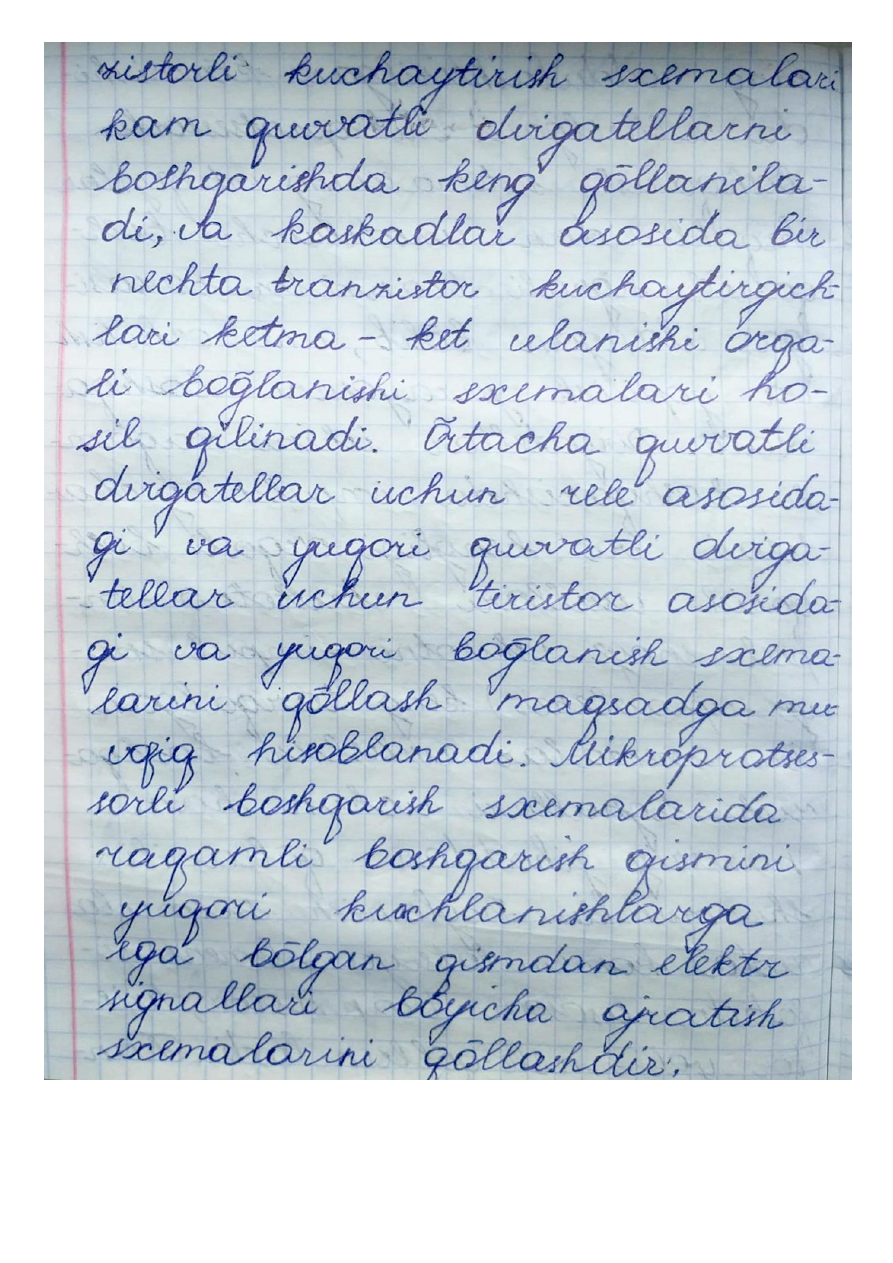 zistorli kuchaytirish sxemalari
kam quvvatli dvigatellarni
boshqarishda keng qo̅llanila-
di, va kaskadlar asosida bir
nechta tranzistor kuchaytirgich-
lari ketma - ket ulanishi orqa-
li bog̅lanishi sxemalari ho-
sil qilinadi. O̅rtacha quvvatli
dvigatellar uchun rele asosida-
gi va yuqori quvvatli dviga-
tellar uchun tiristor asosida-
gi va yuqori bog̅lanish sxema-
larini qo̅llash maqsadga mu-
vofiq hisoblanadi. Mikroprotses-
sorli boshqarish sxemalarida
raqamli boshqarish qismini
yuqori kuchlanishlarga
ega bo̅lgan qismdan elektr
signallari bo̅yicha ajratish
sxemalarini qo̅llashdir.